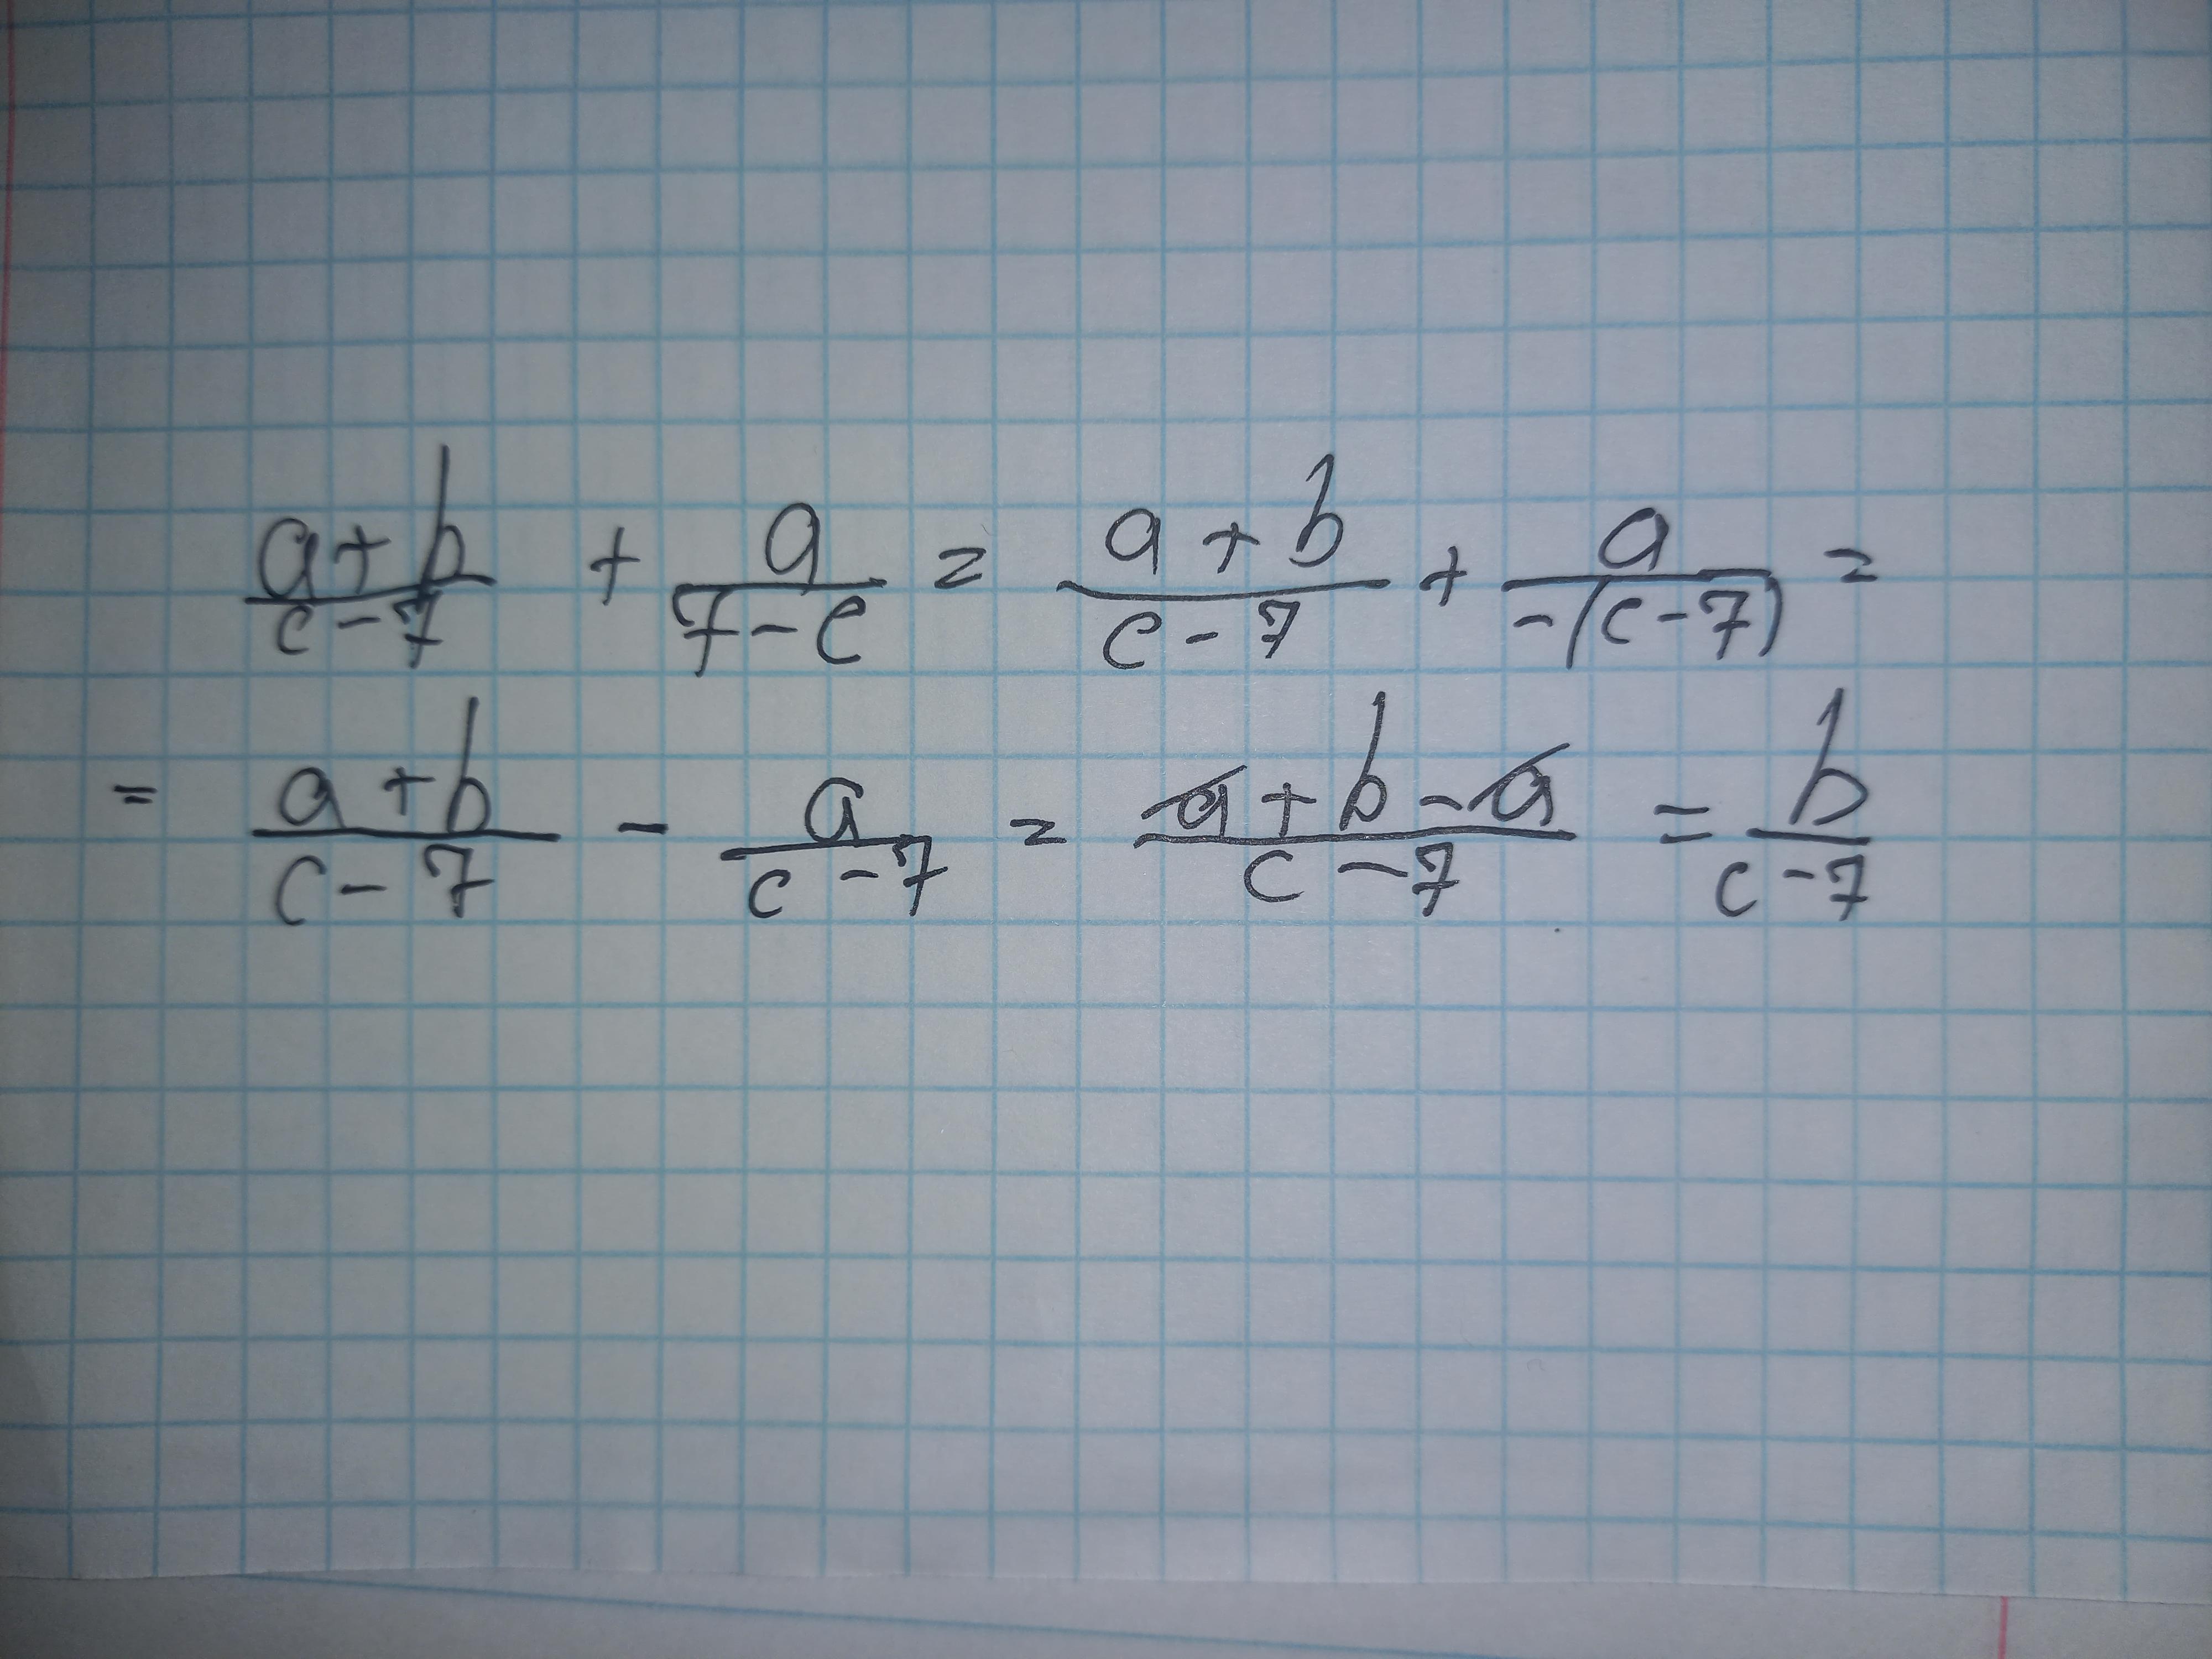 (a+b)/(c-7) + a/(7-c) = (a+b)/(c-7) + a/(-(c-7)) =
= (a+b)/(c-7) - a/(c-7) = (a+b-a)/(c-7) = b/(c-7)